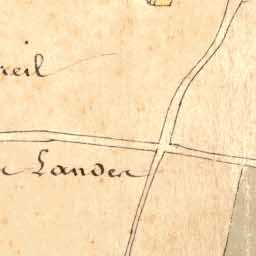 reil
e Landes